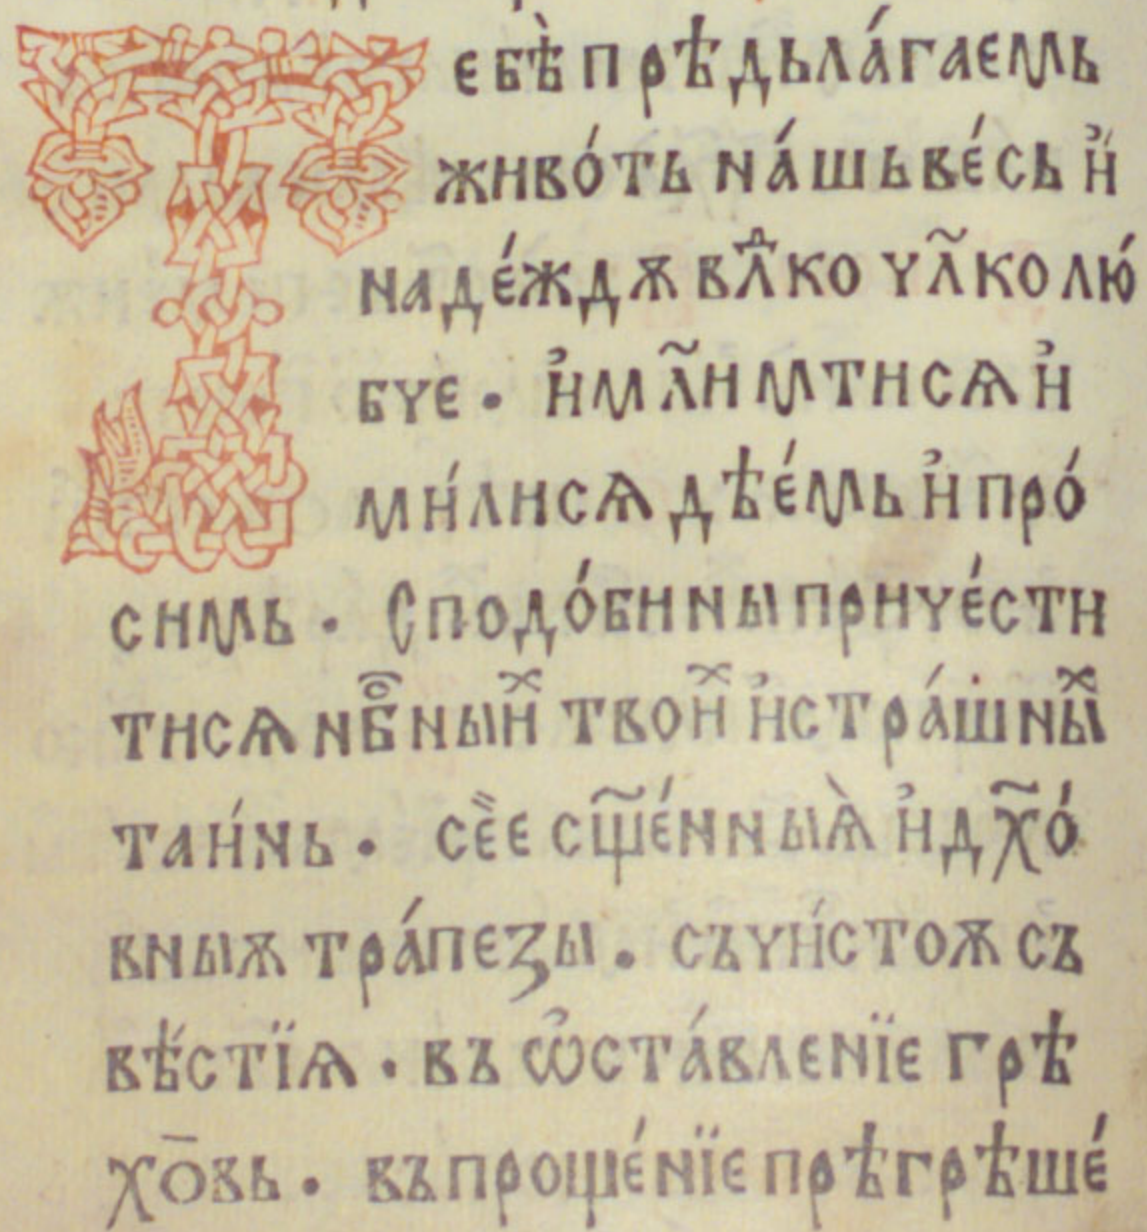 Тебѣ̀ прѣдьла́гаемь
живо́ть на́шь ве́сь и҆́
наде́ждѫ влⷣко ч҃лколю́
бче · и҆ мл҃имтисѧ и҆
ми́лисѧ дѣе́мь и҆ про́
симь · Сподо́би ны приче́сти
тисѧ нбⷭ҇ныиⷯ твоиⷯ и҆ стра́шныⷯ
таи́нь · сее̏ сщ҃е́нныѧ̀ и҆ дх҃о́
вныѫ тра́пезы · съ чи́стоѫ съ
вѣ́стїѧ · въ ѡ҆ста́вленїе грѣ
хо̄вь · въ проще́нїе прѣгрѣше́